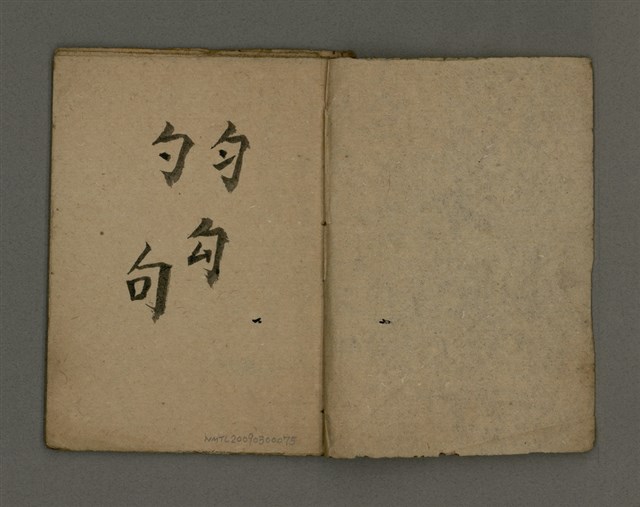 匀
勺
勾
句
NMTL20090300073